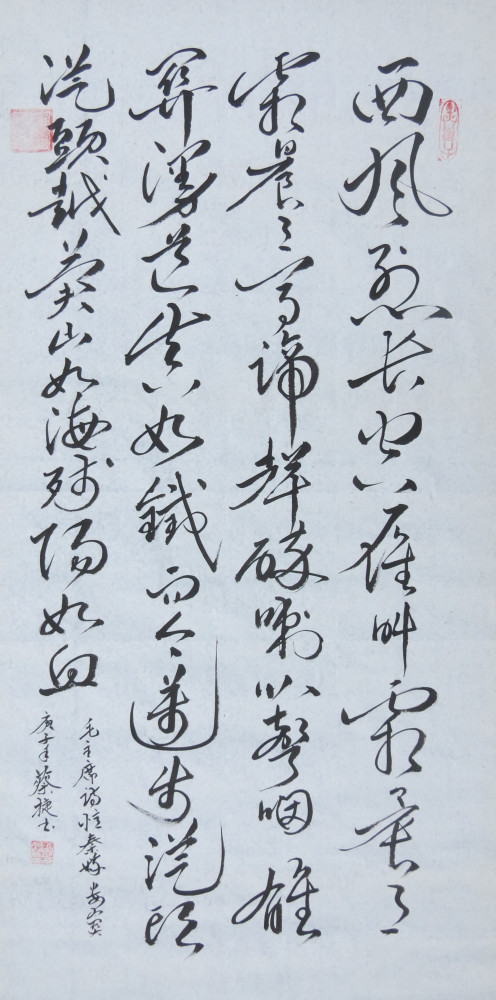 西风烈长空雁叫霜晨月
霜晨月马蹄聲碎喇叭聲咽雄
關漫道真如鐵而今邁步從頭
從頭越蒼山如海殘陽如血
毛主席詩憶秦娥婁山關
庚子年蔡捷书